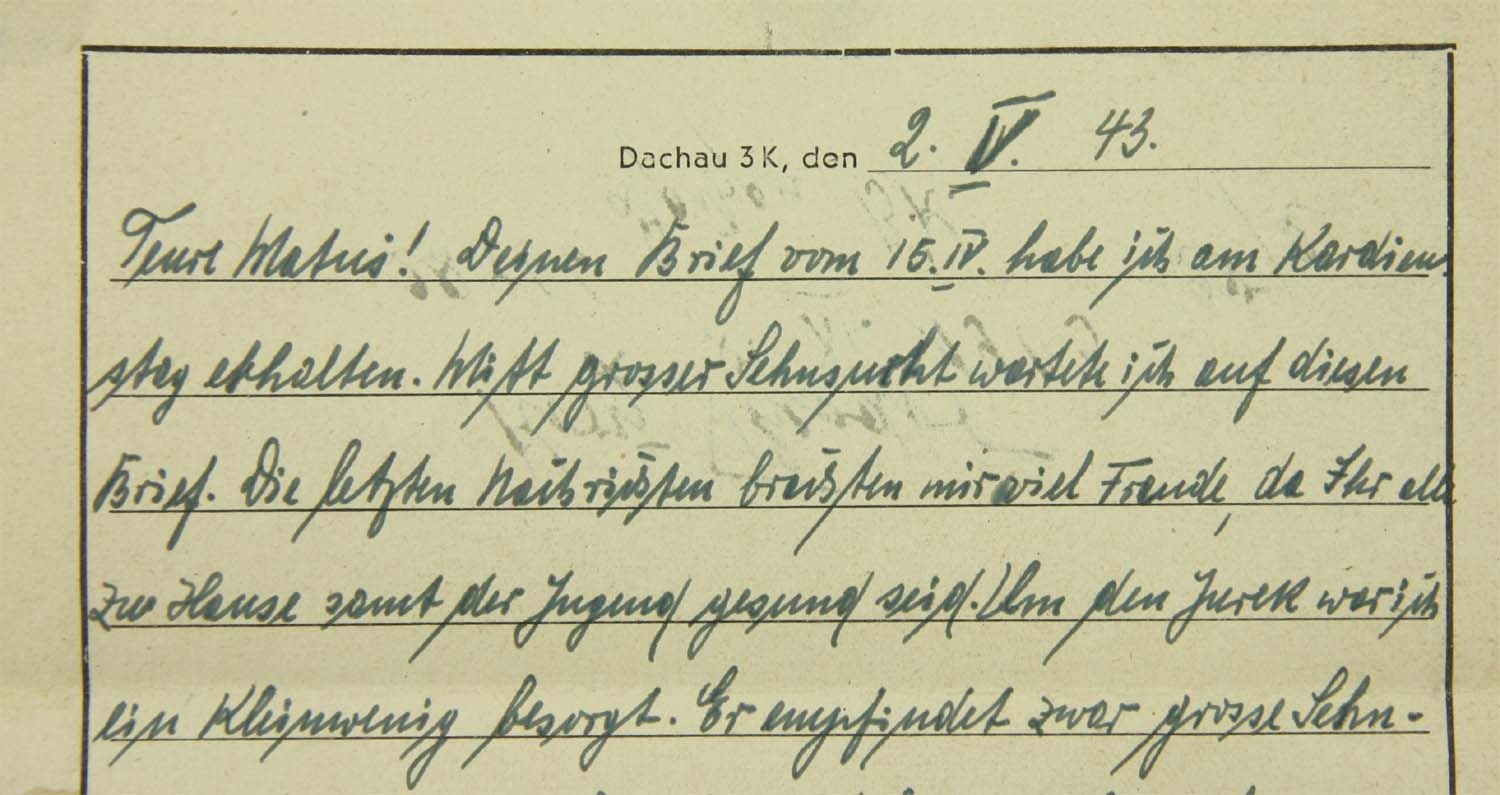 Dachau 3 K, den 2. V. 43.
Teure Matus! Deinen Brief vom 15. IV. habe ich am Kardien-
stag erhalten. Mitt grosser Sehnsucht wartete ich auf diesen
Brief. Die letzten Nachrichten brachten mir viel Freude, da Ihr alle
zur Hause samt der Jugend gesund seid. Um den Jurek war ich
ein Kleinwenig besorgt. Er empfindet zwar grosse Sehn-